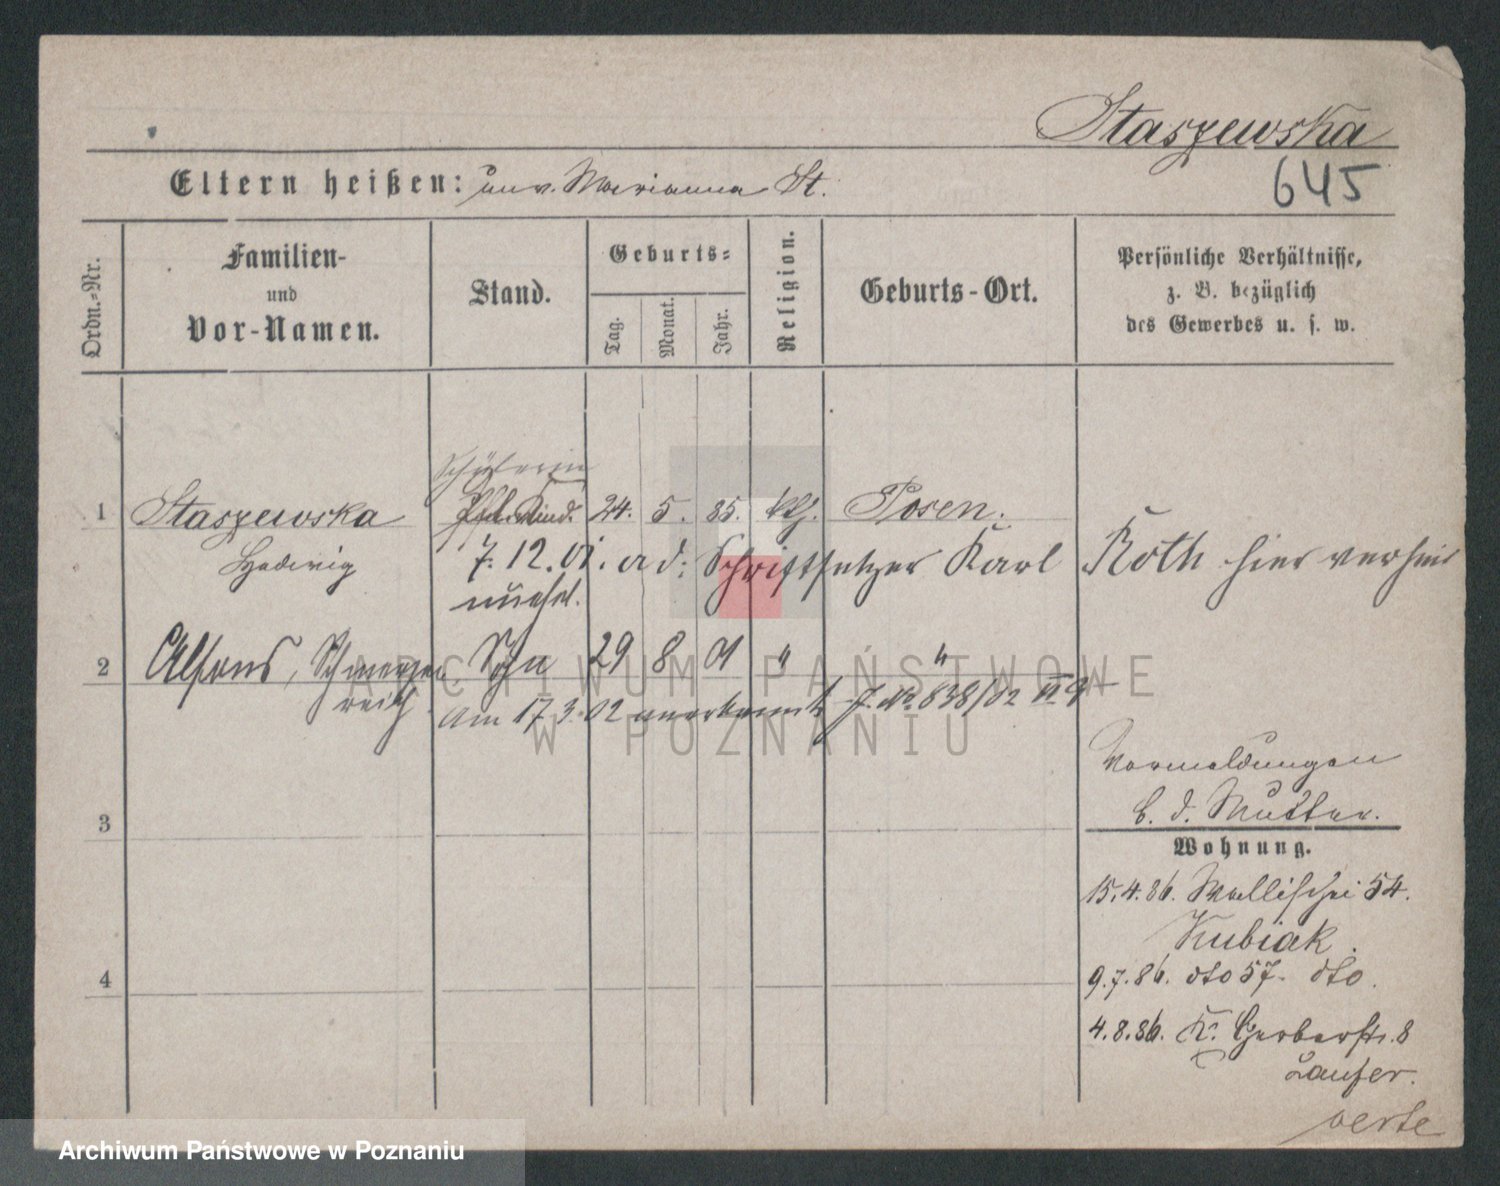 Staszewska
645
Eltern heißen: unv. Marianna St.
Ordn.-Nr.
Familien-
und
Vor-Namen.
Stand.
Geburts-
Tag.
Monat.
Jahr.
Religion.
Geburts-Ort.
Persönliche Verhältnisse,
z. B. bezüglich
des Gewerbes u. s. w.
Schülerin
1 Staszewska Pfl. Kind. 24. 5. 85. kth. Posen.
Hedwig
7.12.01. a d: Schriftsetzer Karl Roth hier verheir
unehel.
2 Alfons, Schmerzen Sohn 29 8 01 " "
reich
am 17.3.02 anerkannt J. No 838/02
3
Vormeldungen
b. d. Mutter.
Wohnung.
15.4.86. Wallischei 54.
Kubiak.
9.7.86. dto 57. dto.
4
4.8.86. Kl. Gerberstr. 8
Laufer.
verte
ARCHIWUM PAŃSTWOWE
W POZNANIU
Archiwum Państwowe w Poznaniu